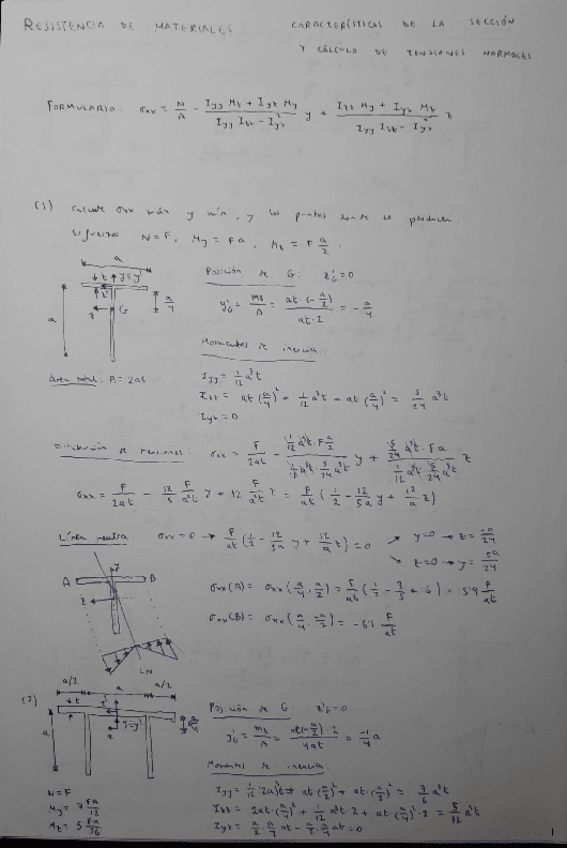 RESISTENCIA DE MATERIALES
CARACTERÍSTICAS DE LA SECCIÓN
Y CÁLCULO DE TENSIONES NORMALES
FORMULARIO: σxx = N/A - (Iyy Mz + Iyz My)/(Iyy Izz - Iyz²) y + (Izz My + Iyz Mz)/(Iyy Izz - Iyz²) z
(1) Calcule σxx máx y mín, y los puntos donde se producen.
Esfuerzos N=F, My = Fa, Mz = F a/2.
a
t
a
a/4
z
G
Posición de G: z'G = 0
y'G = mz/A = at·(-a/2)/(at·2) = -a/4
Área total: A = 2at
Momentos de inercia:
Iyy = 1/12 a³t
Izz = at(a/4)² + 1/12 a³t + at(a/4)² = 5/24 a³t
Iyz = 0
Distribución de tensiones: σxx = F/2at - (1/12 a³t · F a/2)/(1/12 a³t · 5/24 a³t) y + (5/24 a³t · Fa)/(1/12 a³t · 5/24 a³t) z
σxx = F/2at - 12/5 F/a²t y + 12 F/a²t z = F/at (1/2 - 12/5a y + 12/a z)
Línea neutra: σxx = 0 → F/at (1/2 - 12/5a y + 12/a z) = 0
y=0 → z = -a/24
z=0 → y = 5a/24
A
B
z
LN
σxx(A) = σxx(a/4, a/2) = F/at (1/2 - 3/5 + 6) = 5'9 F/at
σxx(B) = σxx(a/4, -a/2) = -6'1 F/at
(2)
a/2
a
a/2
t
a
Posición de G: z'G = 0
y'G = mz/A = at(-a/2)·2/4at = -1/4 a
Momentos de inercia:
N=F
My = 7 Fa/12
Mz = 5 Fa/36
Izz = 2at(a/4)² + 1/12 a³t·2 + at(a/4)²·2 = 5/12 a³t
Iyz = a/2·a/4 at - a/2·a/4 at = 0
1